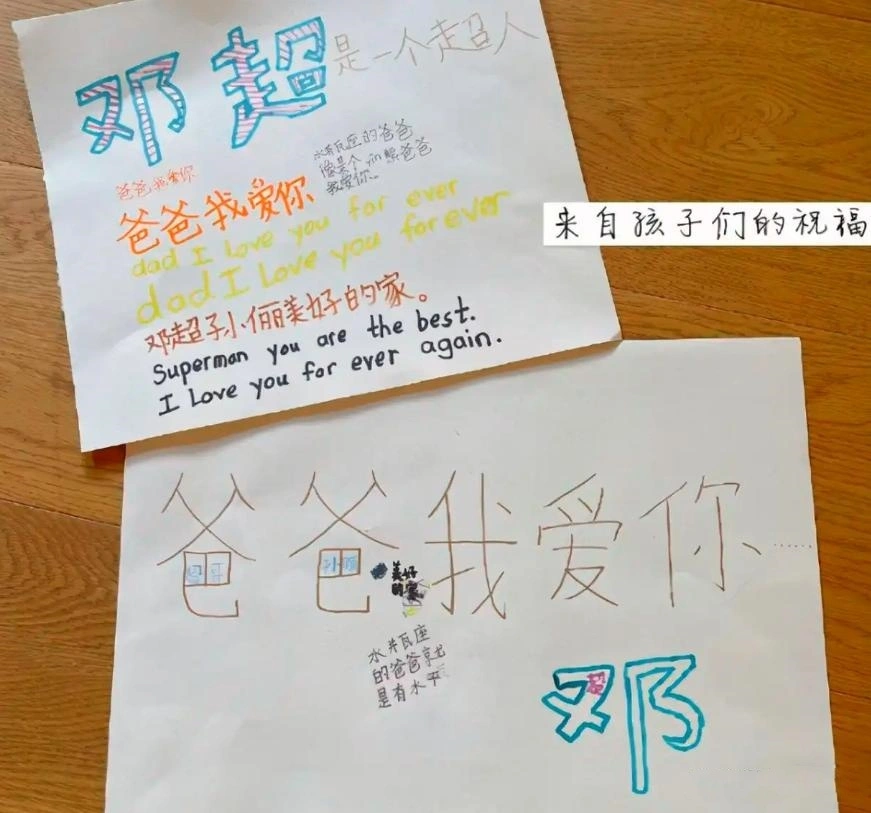 邓超是一个超人
水瓶座的爸爸
像是个 yin 熊爸爸
我爱你。
爸爸我爱你
爸爸我爱你
dad I love you for ever
dad I love you forever
邓超孙俪美好的家。
Superman you are the best.
I Love you for ever again.
来自孩子们的祝福
爸爸我爱你······
美好
的家
水井瓦座
的爸爸就
是有水平
邓
超